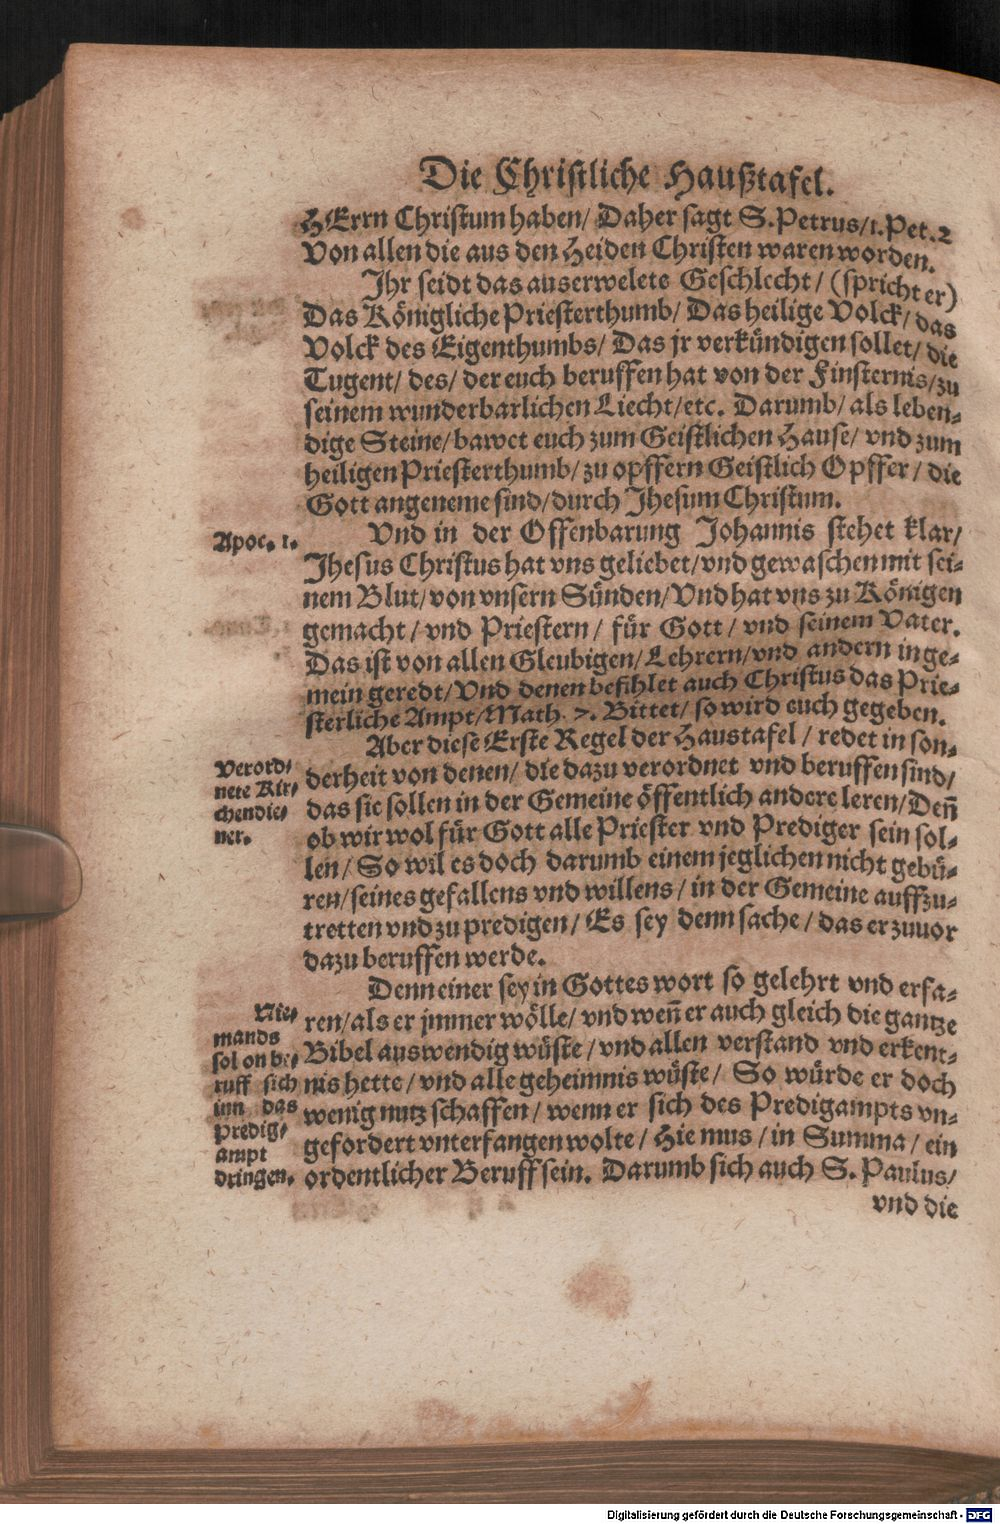 Die Christliche Haußtafel.
HErrn Christum haben/ Daher sagt S. Petrus/1. Pet. 2
Von allen die aus den Heiden Christen waren worden.
Ihr seidt das auserwelete Geschlecht/ (spricht er)
Das Königliche Priesterthumb/ Das heilige Volck/ das
Volck des Eigenthumbs/ Das jr verkündigen sollet/ die
Tugent/ des/ der euch beruffen hat von der Finsternis/ zu
seinem wunderbarlichen Liecht/ etc. Darumb/ als leben-
dige Steine/ bawet euch zum Geistlichen Hause/ vnd zum
heiligen Priesterthumb/ zu opffern Geistlich Opffer/ die
Gott angeneme sind/ durch Jhesum Christum.
Apoc. 1.
Vnd in der Offenbarung Johannis stehet klar/
Jhesus Christus hat vns geliebet/ vnd gewaschen mit sei-
nem Blut/ von vnsern Sünden/ Vnd hat vns zu Königen
gemacht/ vnd Priestern/ für Gott/ vnd seinem Vater.
Das ist von allen Gleubigen/ Lehrern/ vnd andern in ge-
mein geredt/ Vnd denen befihlet auch Christus das Prie-
sterliche Ampt/ Math. 7. Bittet/ so wird euch gegeben.
Aber diese Erste Regel der Haustafel/ redet in son-
Verord-
nete Kir-
chendie-
ner.
derheit von denen/ die dazu verordnet vnd beruffen sind/
das sie sollen in der Gemeine öffentlich andere leren/ Deñ
ob wir wol für Gott alle Priester vnd Prediger sein sol-
len/ So wil es doch darumb einem jeglichen nicht gebü-
ren/ seines gefallens vnd willens/ in der Gemeine auffzu-
tretten vnd zu predigen/ Es sey denn sache/ das er zuuor
dazu beruffen werde.
Denn einer sey in Gottes wort so gelehrt vnd erfa-
Nie-
mands
sol on be-
ruff sich
inn das
Predig-
ampt
dringen.
ren/ als er jmmer wölle/ vnd weñ er auch gleich die gantze
Bibel auswendig wüste/ vnd allen verstand vnd erkent-
nis hette/ vnd alle geheimnis wüste/ So würde er doch
wenig nutz schaffen/ wenn er sich des Predigampts vn-
gefordert vnterfangen wolte/ Hie mus/ in Summa/ ein
ordentlicher Beruff sein. Darumb sich auch S. Paulus/
vnd die
Digitalisierung gefördert durch die Deutsche Forschungsgemeinschaft - DFG